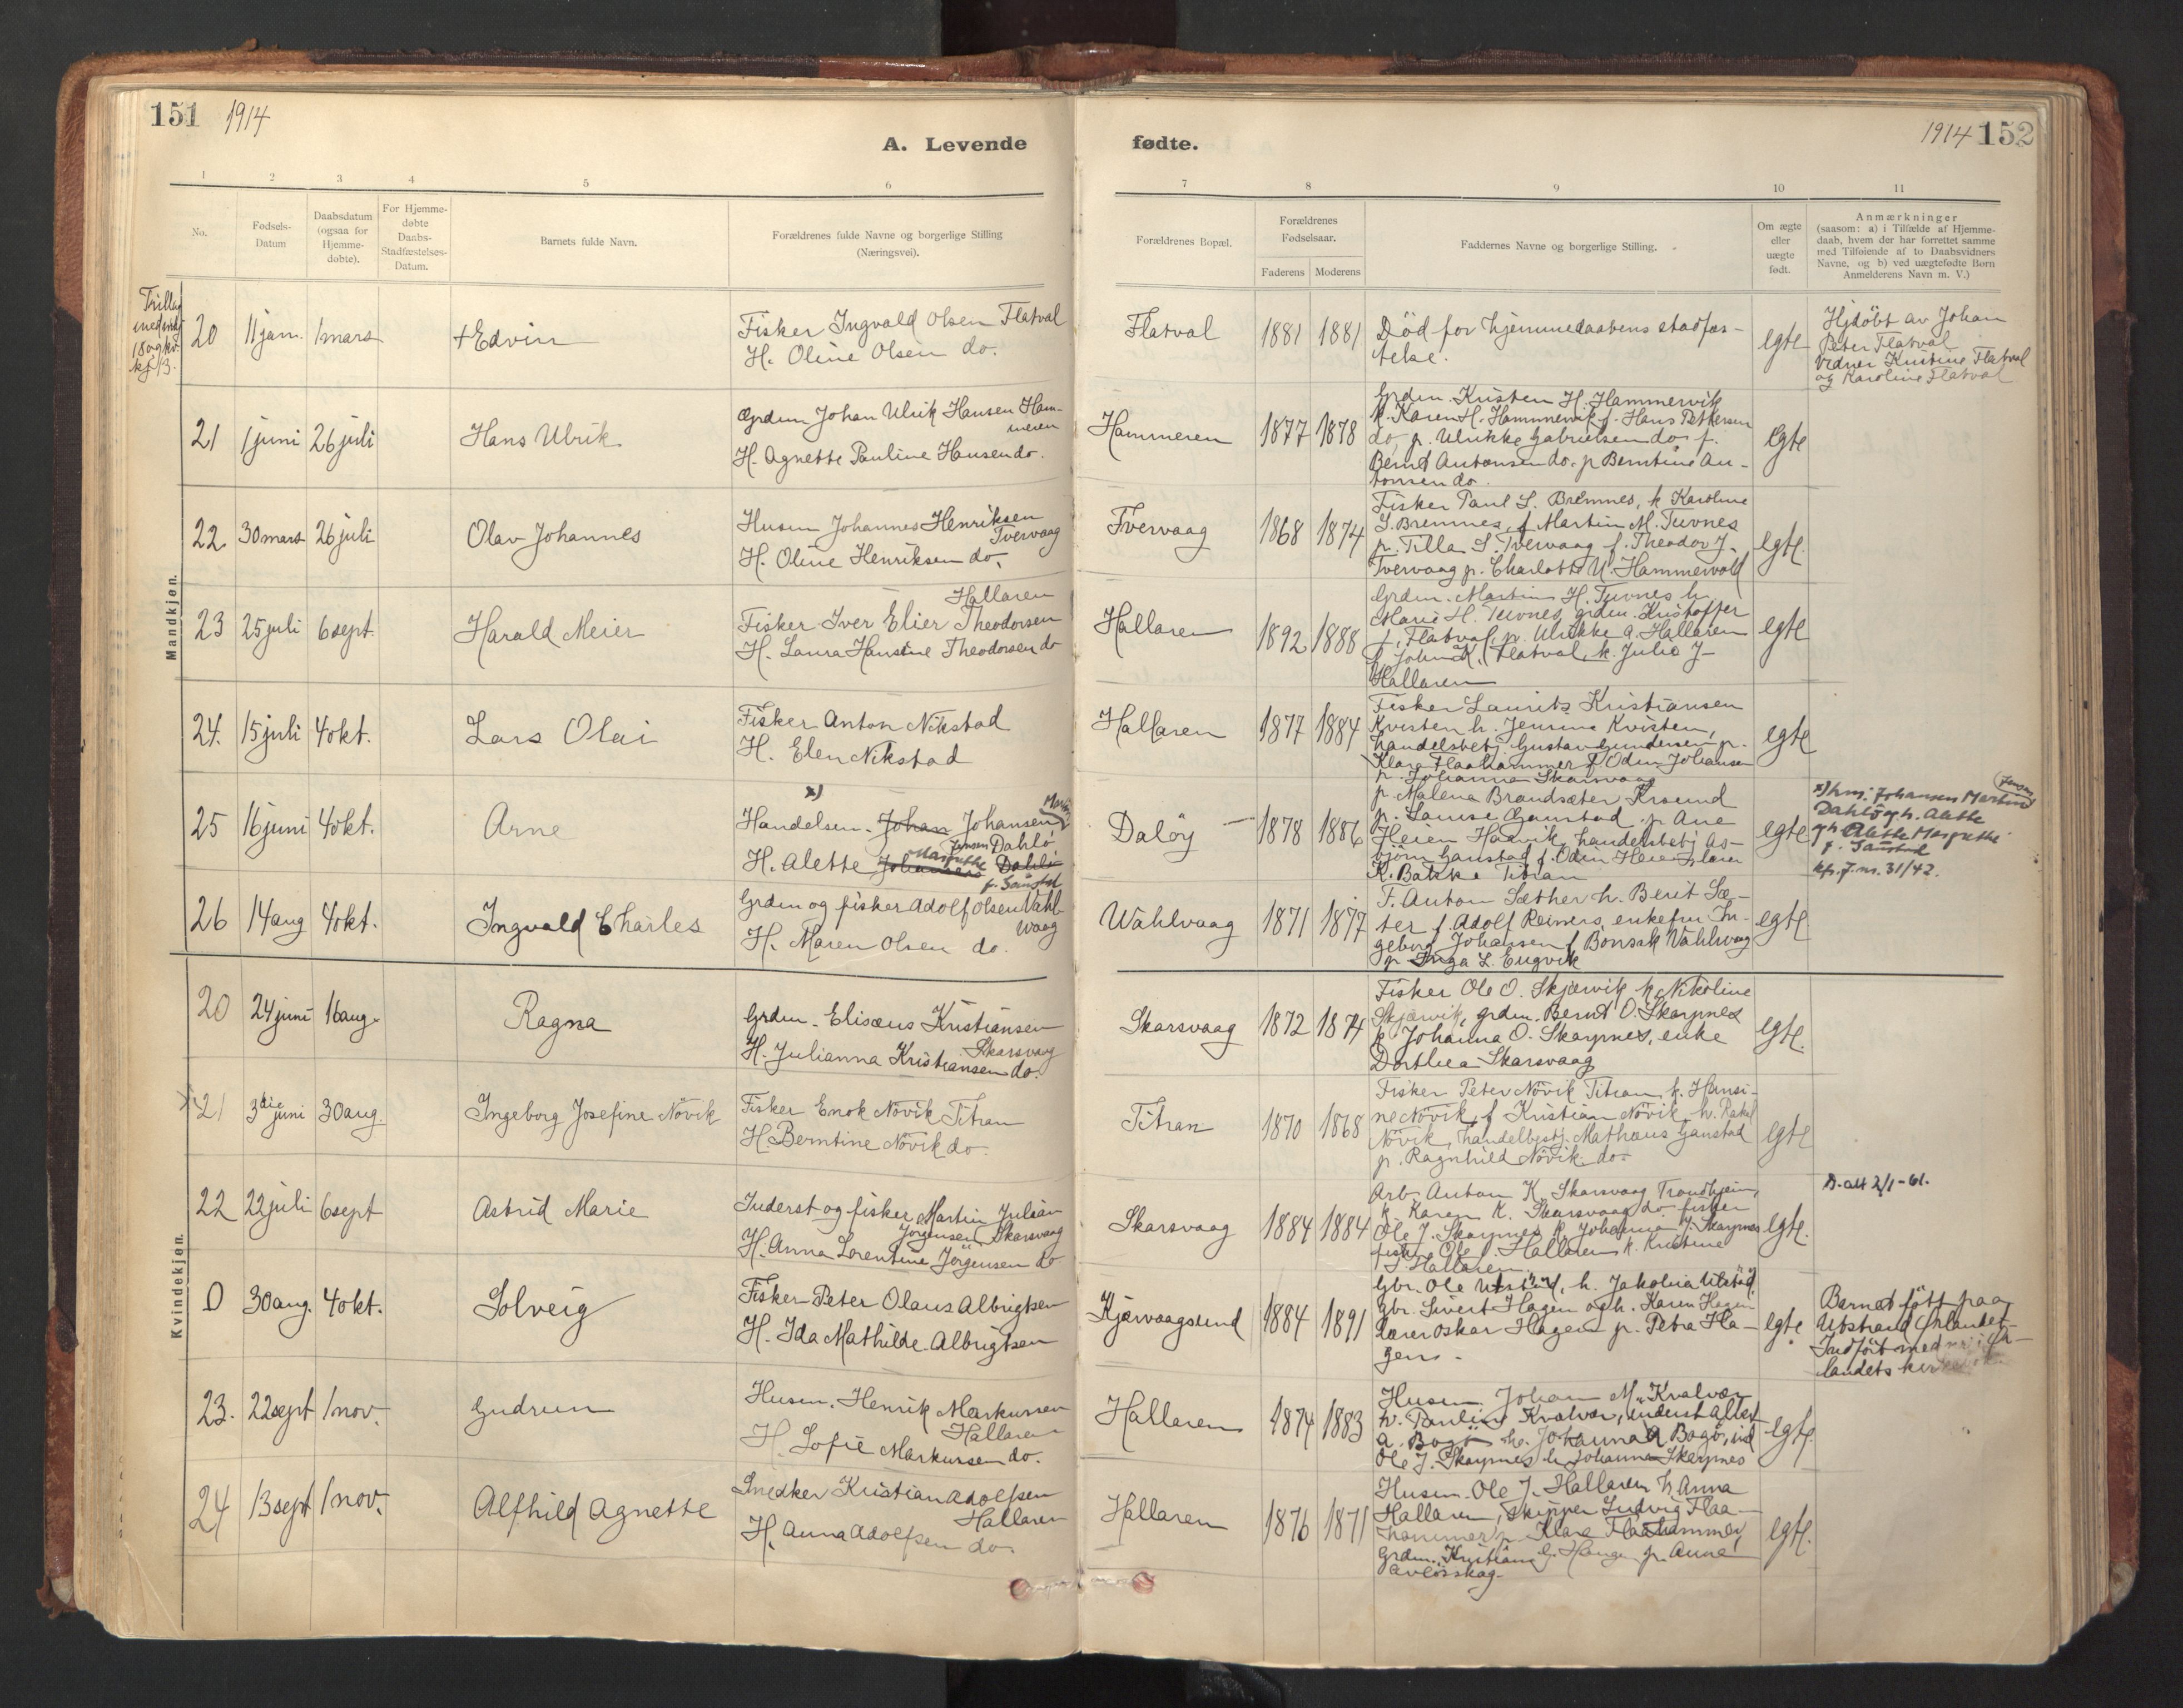 151 1914
A. Levende
1 2 3 4 5 6
No.
Fødsels-
Datum
Daabsdatum
(ogsaa for
Hjemme-
døbte).
For Hjemme-
døbte
Daabs-
Stadfæstelses-
Datum.
Barnets fulde Navn.
Forældrenes fulde Navne og borgerlige Stilling
(Næringsvei).
Mandkjøn.
20 11 jan. 1 mars +Edvin
Fisker Ingvald Olsen Flatval
H. Oline Olsen do.
21 1 juni 26 juli Hans Ulrik
Grdm Johan Ulrik Hansen Ham-
meren
H. Agnette Pauline Hansen do.
22. 30 mars 26 juli Olav Johannes
Husm Johannes Henriksen
Tvervaag
H. Oline Henriksen do.
23 25 juli 6 sept. Harald Meier
Hallaren
Fisker Iver Elier Theodorsen
H. Laura Hansine Theodorsen do
24. 15 juli 4 okt. Lars Olai
Fisker Anton Nikstad
H. Elen Nikstad
25 16 juni 4 okt. Arne
x)
Handelsm. Johan Johansen Martin
Jensen Dahlö
H. Alette Margrethe Dahlö
f. Ganstad
26 14 aug 4 okt. Ingvald Charles
Grdm og fisker Adolf Olsen Vahl-
vaag
H. Maren Olsen do.
Kvindekjøn.
20 24 juni 16 aug. Ragna
Grdm. Elisæus Kristiansen
Skarsvaag
H. Julianna Kristiansen do.
x 21 3die juni 30 aug. Ingeborg Josefine Növik
Fisker Enok Növik Titran
H. Berntine Növik do.
22 22 juli 6 sept Astrid Marie
Inderst og fisker Martin Julian
Jörgensen Skarsvaag
H. Anna Lorentine Jörgensen do
0 30 aug. 4 okt. Solveig
Fisker Peter Olaus Albrigtsen
H. Ida Mathilde Albrigtsen
23. 22 sept 1 nov. Gudrun
Husm. Henrik Markussen
Hallaren
H. Sofie Markussen do.
24 13 sept 1 nov. Alfhild Agnette
Snedker Kristian Adolfsen
Hallaren
H. Anna Adolfsen do.
1914 152
fødte.
7 8 9 10 11
Forældrenes Bopæl.
Forældrenes
Fødselsaar.
Faderens Moderens
Faddernes Navne og borgerlige Stilling.
Om ægte
eller
uægte
født.
Anmærkninger
(saasom: a) i Tilfælde af Hjemme-
daab, hvem der har forrettet samme
med Tilføiende af to Daabsvidners
Navne, og b) ved uægtefødte Børn
Anmelderens Navn m. V.)
Flatval 1881 1881
Död for hjemmedaabens stadfæs-
telse.
egte
Hjdöbt av Johan
Peter Flatval
Vidner Kristine Flatval
og Karoline Flatval
Hammeren 1877 1878
Grdm. Kristen H. Hammervik
k. Karen H. Hammervik f. Hans Pettersen
do p. Ulrikke Gabrielsen do f.
Bernt Antonsen do. p Berntine An-
tonsen do.
egte
Tvervaag 1868 1874
Fisker Paul S. Bremnes, k Karoline
S. Bremnes, f Martin M. Tuvnes
p. Tilla S. Tvervaag f. Theodor J.
Tvervaag p. Charlotte U. Hammervold
egte.
Hallaren 1892 1888
Grdm. Martin H. Tuvnes h.
Marie H. Tuvnes, grdm. Kristoffer
J. Flatval, p. Ulrikke A. Hallaren
f. Johan K. Flatval, k. Julie J.
Hallaren
egte
Hallaren 1877 1884
Fisker Laurits Kristiansen
Kvisten h. Jensine Kvisten,
handelsbetj. Gustav Gundersen p.
Klara Flaahammer f Odin Johansen
p. Johanna Skarsvaag
egte
Dalöy 1878 1886
p. Malena Brandsæter Krsund
p. Louise Ganstad, p. Ane
Heien Havik, handelsbetj As-
björn Ganstad f. Oden Heien, lærer
K. Bakke Titran
egte
x) hm. Johansen Martin
Jensen
Dahlö og h. Alette
Alette Margrethe
f. Ganstad
kfr. J. nr. 31/42.
Wahlvaag 1871 1877
F. Anton Sæther h. Berit Sæ-
ter f. Adolf Reiners, enkefru In-
geborg Johansen f Bonsak Vahlvaag
p Inga L. Engvik
egte
Skarsvaag 1872 1874
Fisker Ole O. Skjærvik h. Nikoline
Skjærvik, grdm. Bernt O. Skarpnes
k Johanna O. Skarpnes, enke
Dorthea Skarsvaag
egte.
Titran 1870 1868
Fisker Peter Növik Titran, k. Hansi-
ne Növik, f Kristian Növik h. Rakel
Növik, handelbestj. Mathæus Ganstad
p. Ragnhild Növik do.
egte
Skarsvaag 1884 1884
Arb. Anton K. Skarsvaag Trondhjem,
k Karen K. Skarsvaag do. fisker
Ole J. Skarpnes k. Johanna J. Skarpnes
fisker Ole J. Hallaren k. Kristine
J. Hallaren
egte.
D. att 2/1-61.
Kjærvaagsund 1884 1891
Gbr. Ole Utstad, h. Jakobia Utstad
Gbr. Sivert Hagen og h. Karen Hagen
Lærer Oskar Hagen p. Petra Ha-
gen.
egte.
Barnet född paa
Utstrand Örlandet
Indfört med
landets
Hallaren 1874 1883
Husm. Johan M. Kvalvær
h. Pauline Kvalvær, inderst Albert
A. Bogö h. Johanna A Bogö, ind
Ole J. Skarpnes h Johanna Skarpnes
egte.
Hallaren 1876 1871
Husm. Ole J. Hallaren h Anna
Hallaren, skipper Ludvig Flaa-
hammer p Klara Flaahammer,
Grdm. Kristian Hangen p. Anna

egte.